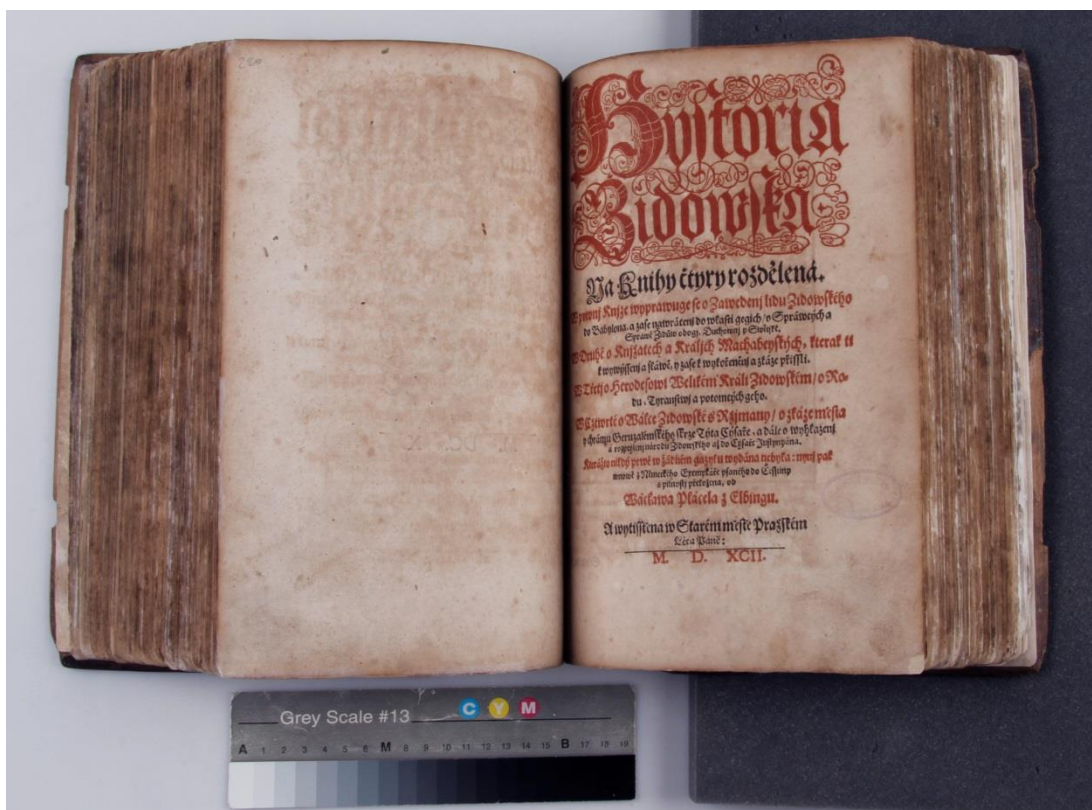 280
Hystoria
Židowska
Na Knihy čtyry rozdělená.
W prwnj Knjze wyprawuge se o Zawedenj lidu Židowského
do Babylona, a zase nawrácenj do wlasti gegich / o Spráwcých a
Spráwě Židůw obogj, Duchownj y Swětské.
W Druhé o Knjžatech a Králjch Machabeyských, kterak ti
k wywýssenj a sláwě, y zase k wykořeněnj a zkáze přissli.
W Třetj o Herodesowi Welikém Králi Židowském / o Ro-
du, Tyranstwj a potomcých geho.
W Cžtwrté o Wálce Židowské s Ržjmany / o zkáze města
y chrámu Geruzalémského skrze Týta Cýsaře, a dále o wyhlazenj
a rozptýlenj národu Židowského až do Cýsaře Justynyána.
Kterážto nikdý prwé w žádném gazyku wydána nebyla: nynj pak
nowě z Německého Exemplaře psaného do Cžesstiny
s pilnostj přeložena, od
Wácława Plácela z Elbingu.
A wytisstěna w Starém městě Pražském
Léta Páně:
M. D. XCII.
Grey Scale #13
C Y M
A 1 2 3 4 5 6 M 8 9 10 11 12 13 14 15 B 17 18 19